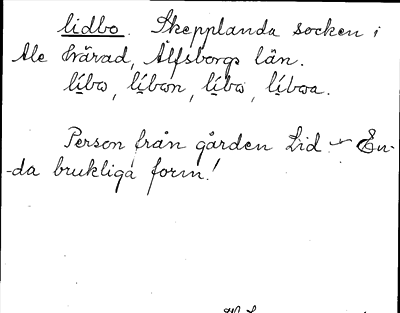 lidbo. Skepplanda socken i
Ale härad, Älfsborgs län.
Person från gården Lid. — En-
-da brukliga form!